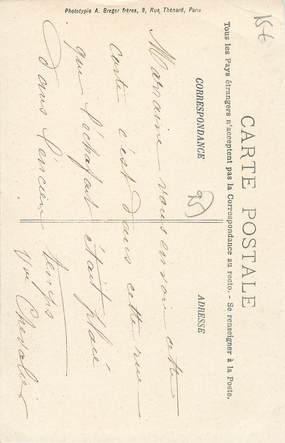 Phototypie A. Breger frères, 9, Rue Thénard, Paris
CARTE POSTALE
Tous les Pays étrangers n'acceptent pas la Correspondance au recto. - Se renseigner à la Poste.
CORRESPONDANCE
ADRESSE
Marraine vous envoie cette
carte c'est dans cette rue
que l'échafaut était placé
dans l'encien temps
Vve Chevalier